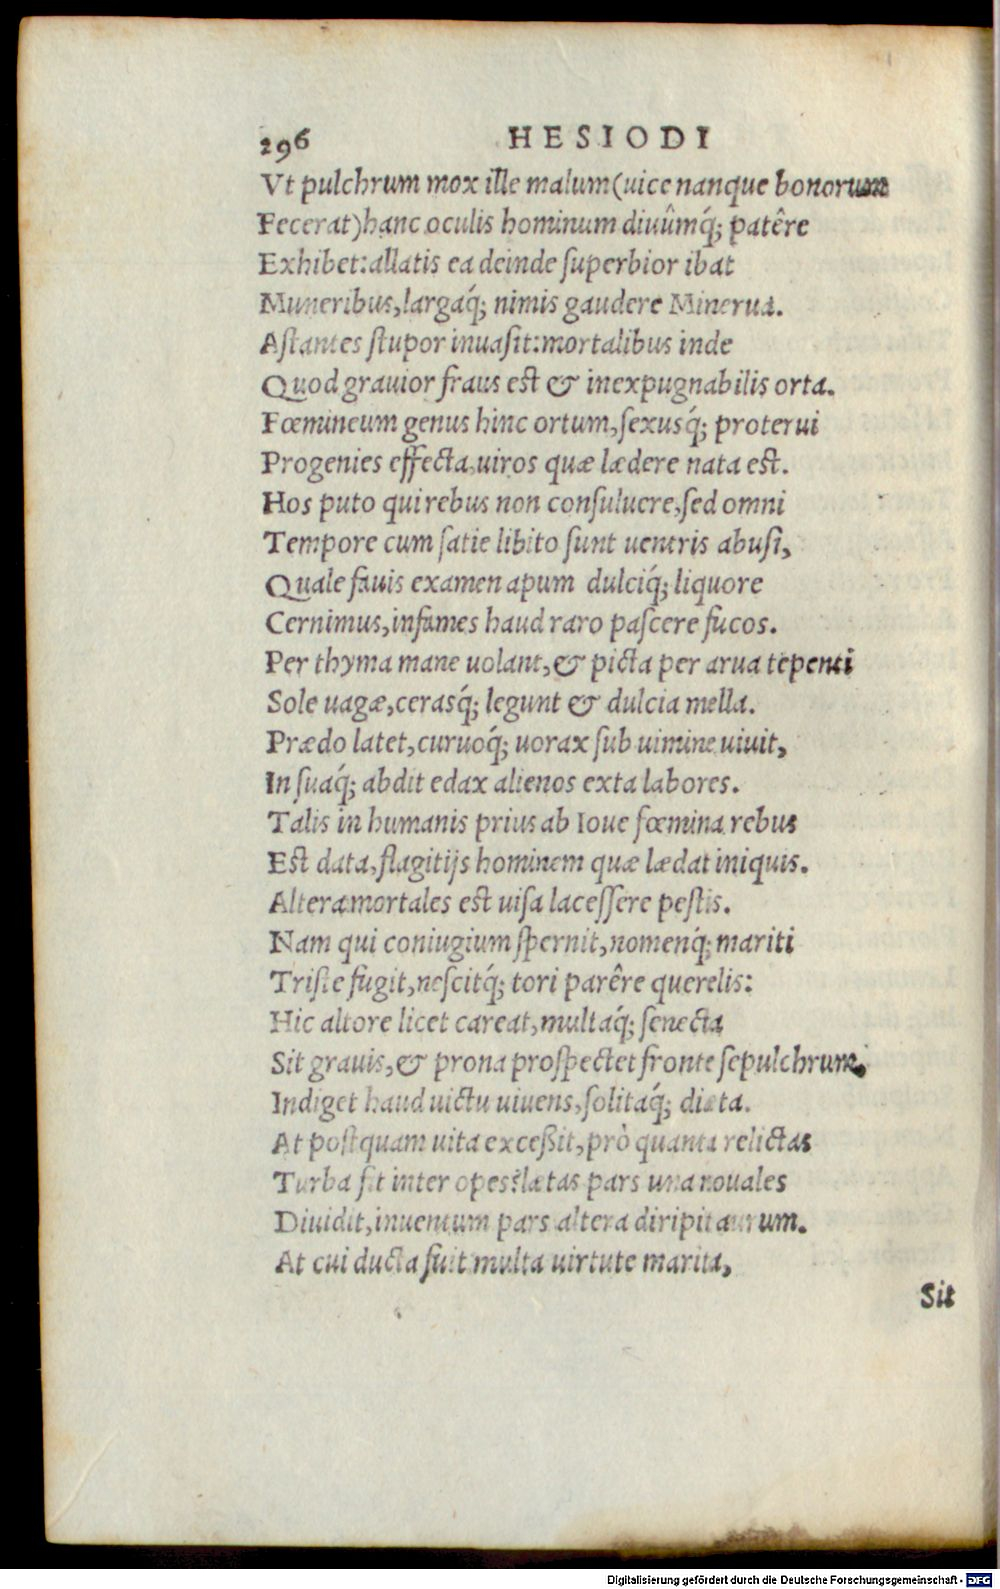 296 HESIODI
Vt pulchrum mox ille malum(uice nanque bonorum
Fecerat)hanc oculis hominum diuûmq́; patêre
Exhibet:allatis ea deinde ſuperbior ibat
Muneribus,largaq́; nimis gaudere Minerua.
Aſtantes ſtupor inuaſit:mortalibus inde
Quod grauior fraus eſt & inexpugnabilis orta.
Fœmineum genus hinc ortum,ſexusq́; proterui
Progenies effecta,uiros quæ lædere nata eſt.
Hos puto qui rebus non conſuluere,ſed omni
Tempore cum ſatie libito ſunt uentris abuſi,
Quale fauis examen apum dulciq́; liquore
Cernimus,infames haud raro paſcere fucos.
Per thyma mane uolant,& picta per arua tepenti
Sole uagæ,cerasq́; legunt & dulcia mella.
Prædo latet,curuoq́; uorax ſub uimine uiuit,
In ſuaq́; abdit edax alienos exta labores.
Talis in humanis prius ab Ioue fœmina rebus
Eſt data,flagitijs hominem quæ lædat iniquis.
Altera mortales eſt uiſa laceſſere peſtis.
Nam qui coniugium ſpernit,nomenq́; mariti
Triſte fugit,neſcitq́; tori parêre querelis:
Hic altore licet careat,multaq́; ſenecta
Sit grauis,& prona proſpectet fronte ſepulchrum,
Indiget haud uictu uiuens,ſolitaq́; diæta.
At poſtquam uita exceßit,prò quanta relictas
Turba fit inter opes:lætas pars una nouales
Diuidit,inuentum pars altera diripit aurum.
At cui ducta fuit multa uirtute marita,
Sit
Digitalisierung gefördert durch die Deutsche Forschungsgemeinschaft - DFG